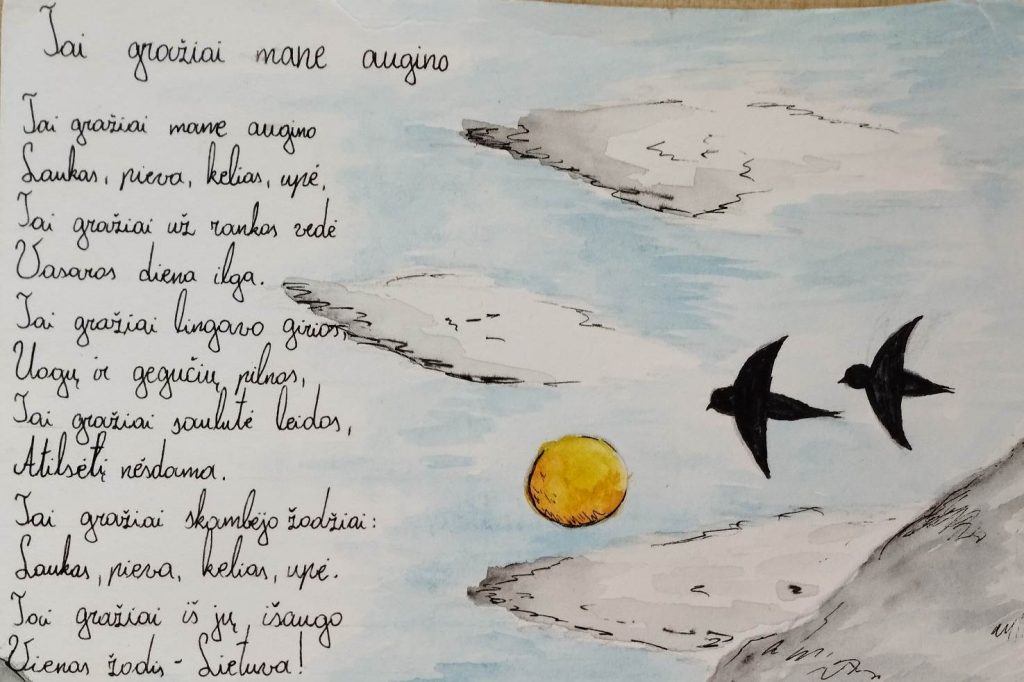 Tai gražiai mane augino
Tai gražiai mane augino
Laukas, pieva, kelias, upė,
Tai gražiai už rankos vedė
Vasaros diena ilga.
Tai gražiai lingavo girios,
Uogų ir gegučių pilnos,
Tai gražiai saulutė leidos,
Atilsėlį nešdama.
Tai gražiai skambėjo žodžiai:
Laukas, pieva, kelias, upė.
Tai gražiai iš jų išaugo
Vienas žodis - Lietuva!